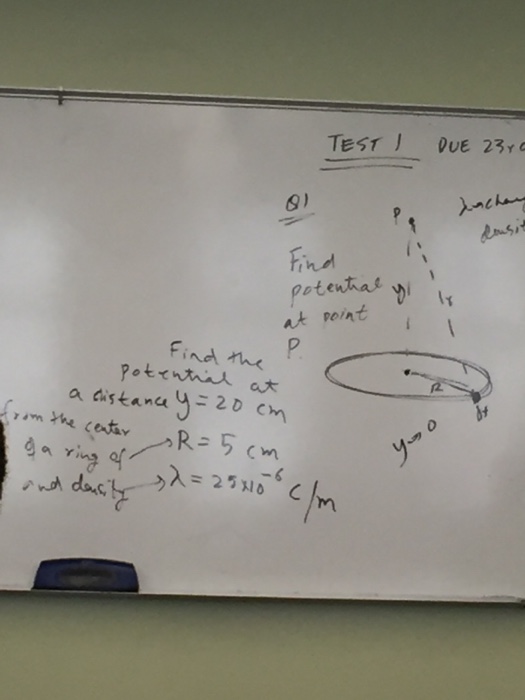 TEST 1 DUE 23r
Q1
P
Find
potential y
at point r
P.
R
Find the
potential at
a distance y = 20 cm
from the center
of a ring of → R = 5 cm
and density → λ = 25x10⁻⁶ C/m
y→0